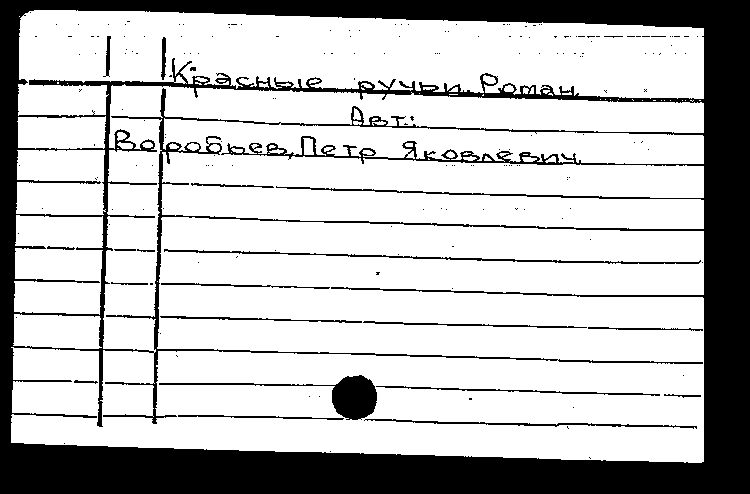 Красные ручьи. Роман.
Авт.:
Воробьев, Петр Яковлевич